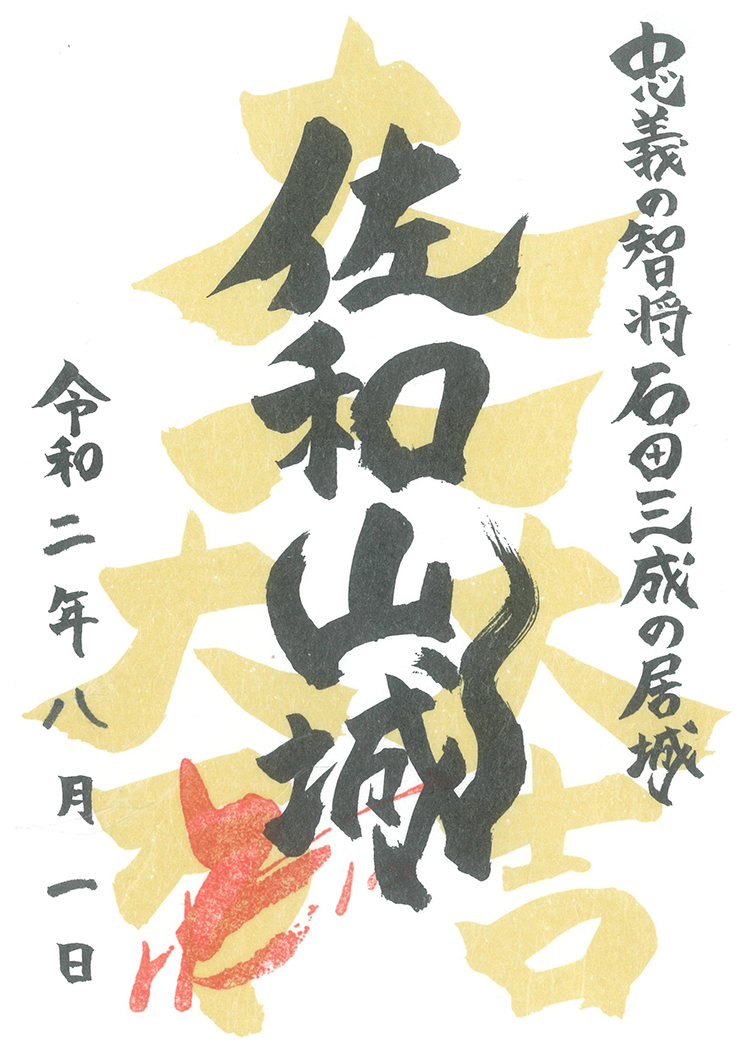 忠義の智将石田三成の居城
佐和山城
令和二年八月一日
大一大万大吉